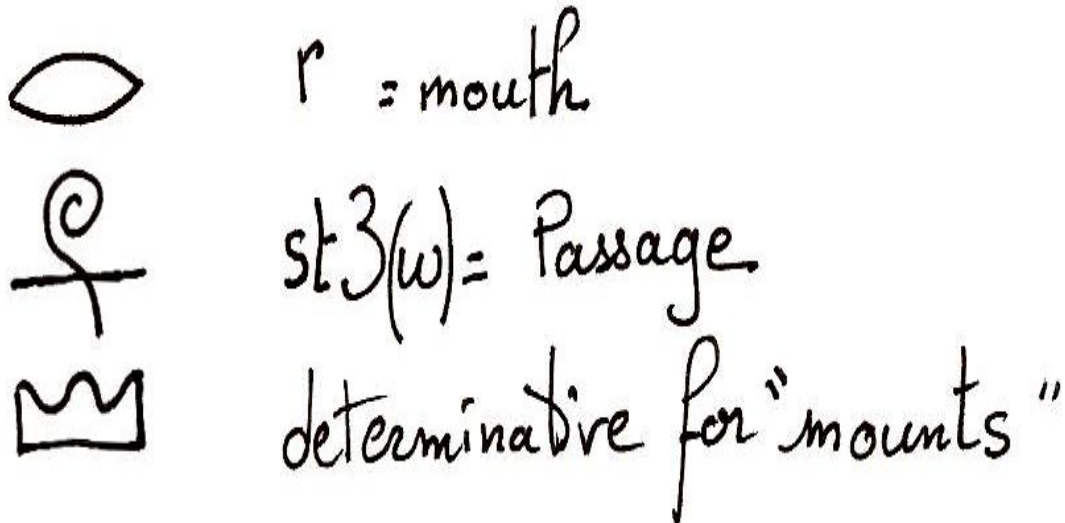 𓂋 r = mouth
𓍱 st3(w) = Passage
𓈉 determinative for "mounts"